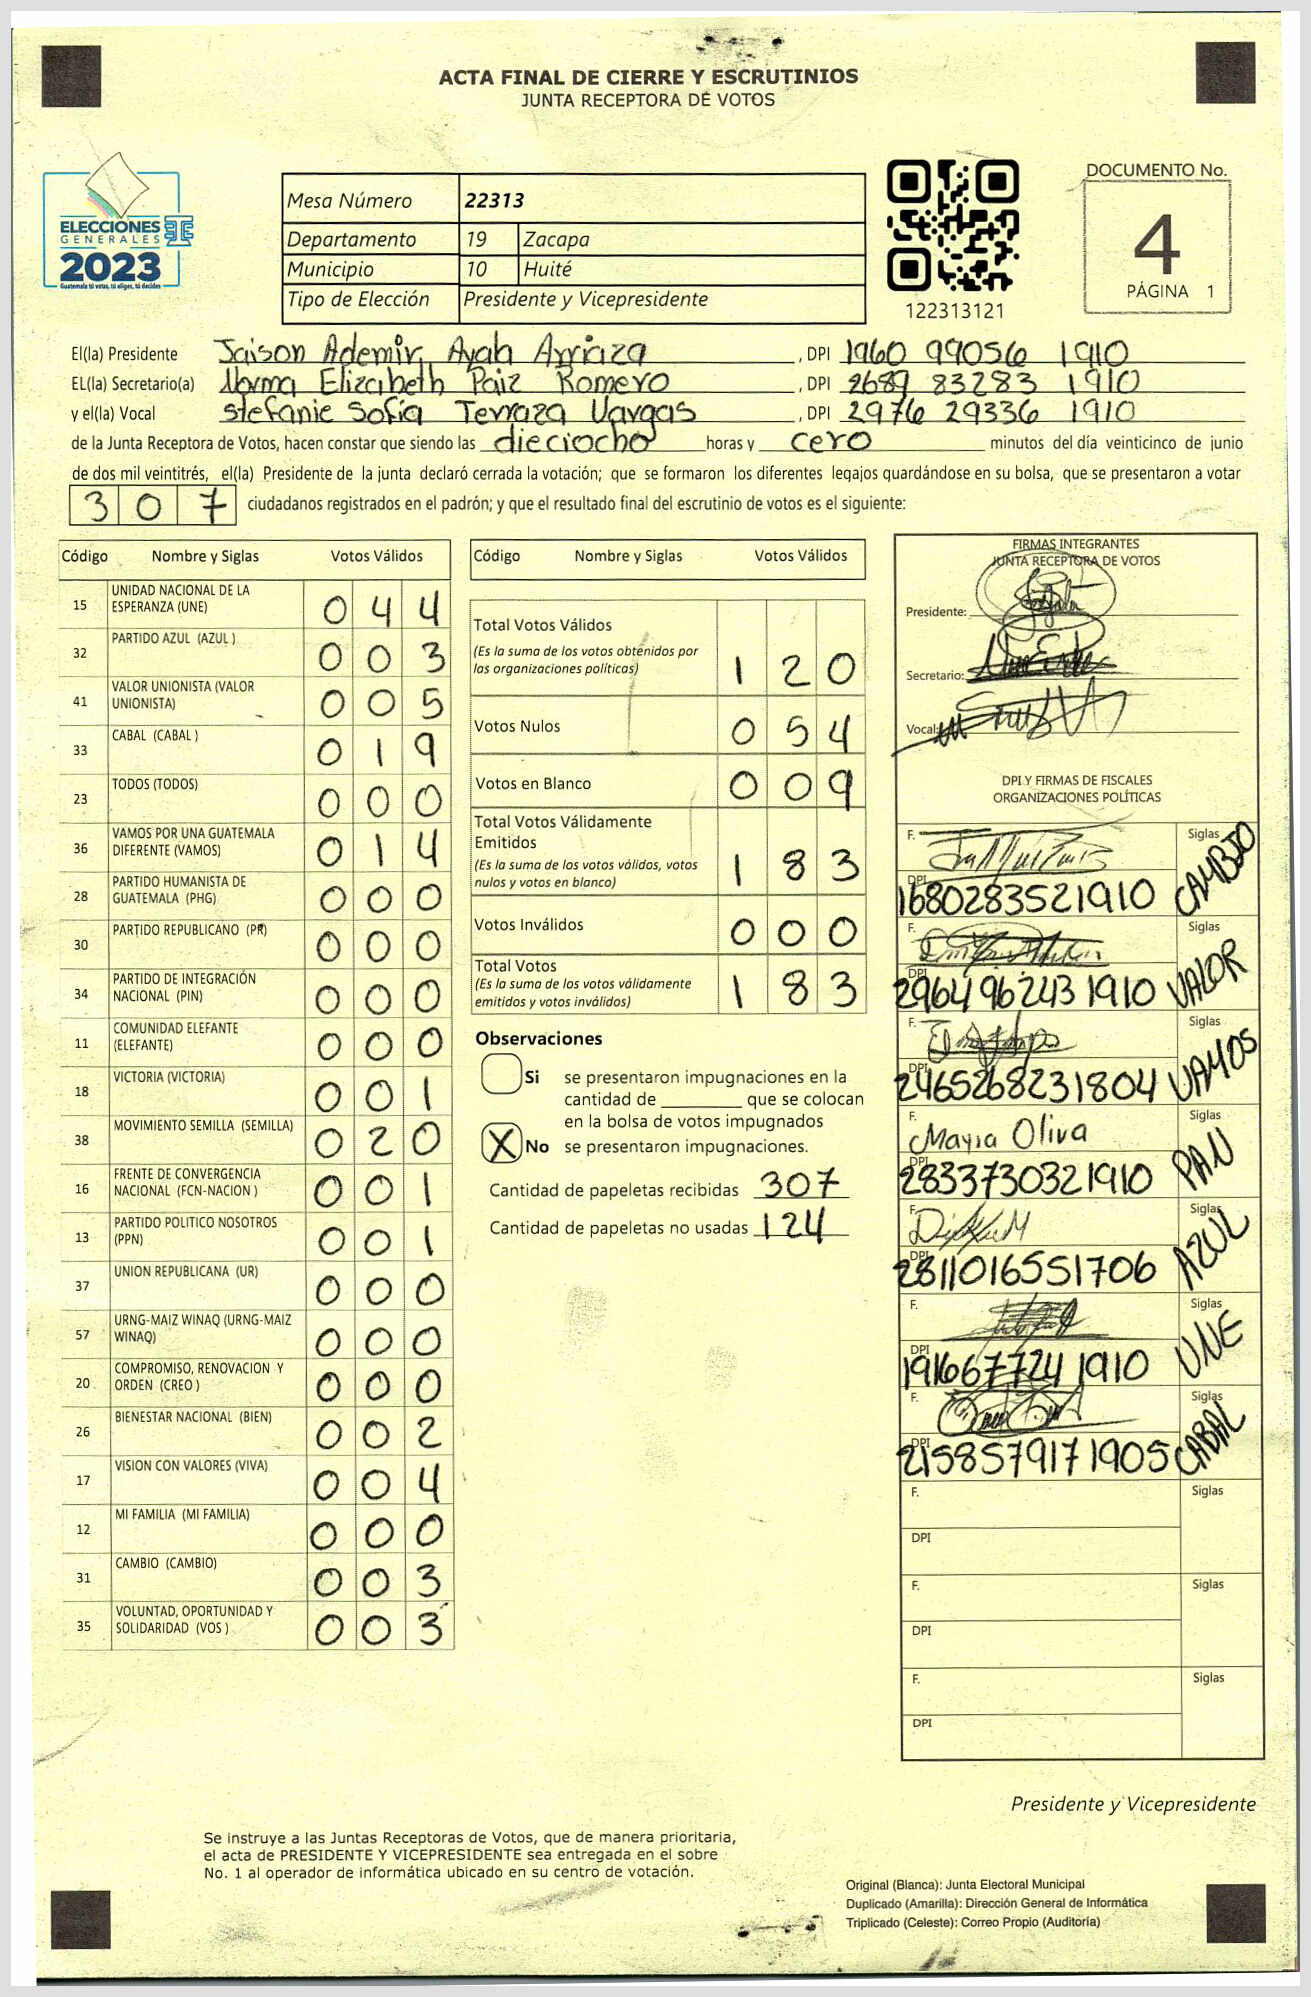 ACTA FINAL DE CIERRE Y ESCRUTINIOS
JUNTA RECEPTORA DE VOTOS
ELECCIONES
GENERALES
2023
Guatemala tú votas, tú eliges, tú decides
Mesa Número 22313
Departamento 19 Zacapa
Municipio 10 Huité
Tipo de Elección Presidente y Vicepresidente
122313121
DOCUMENTO No.
4
PÁGINA 1
El(la) Presidente Jaison Ademir Ayala Arriaza, DPI 1960 99056 1910
EL(la) Secretario(a) Norma Elizabeth Paiz Romero, DPI 2689 83283 1910
y el(la) Vocal Stefanie Sofía Terraza Vargas, DPI 2976 29336 1910
de la Junta Receptora de Votos, hacen constar que siendo las dieciocho horas y cero minutos del día veinticinco de junio
de dos mil veintitrés, el(la) Presidente de la junta declaró cerrada la votación; que se formaron los diferentes legajos guardándose en su bolsa, que se presentaron a votar
307 ciudadanos registrados en el padrón; y que el resultado final del escrutinio de votos es el siguiente:
Código Nombre y Siglas Votos Válidos
15 UNIDAD NACIONAL DE LA ESPERANZA (UNE) 044
32 PARTIDO AZUL (AZUL ) 003
41 VALOR UNIONISTA (VALOR UNIONISTA) 005
33 CABAL (CABAL ) 019
23 TODOS (TODOS) 000
36 VAMOS POR UNA GUATEMALA DIFERENTE (VAMOS) 014
28 PARTIDO HUMANISTA DE GUATEMALA (PHG) 000
30 PARTIDO REPUBLICANO (PR) 000
34 PARTIDO DE INTEGRACIÓN NACIONAL (PIN) 000
11 COMUNIDAD ELEFANTE (ELEFANTE) 000
18 VICTORIA (VICTORIA) 001
38 MOVIMIENTO SEMILLA (SEMILLA) 020
16 FRENTE DE CONVERGENCIA NACIONAL (FCN-NACION ) 001
13 PARTIDO POLITICO NOSOTROS (PPN) 001
37 UNION REPUBLICANA (UR) 000
57 URNG-MAIZ WINAQ (URNG-MAIZ WINAQ) 000
20 COMPROMISO, RENOVACION Y ORDEN (CREO ) 000
26 BIENESTAR NACIONAL (BIEN) 002
17 VISION CON VALORES (VIVA) 004
12 MI FAMILIA (MI FAMILIA) 000
31 CAMBIO (CAMBIO) 003
35 VOLUNTAD, OPORTUNIDAD Y SOLIDARIDAD (VOS ) 003
Código Nombre y Siglas Votos Válidos
Total Votos Válidos
(Es la suma de los votos obtenidos por
las organizaciones políticas) 120
Votos Nulos 054
Votos en Blanco 009
Total Votos Válidamente
Emitidos
(Es la suma de los votos válidos, votos
nulos y votos en blanco) 183
Votos Inválidos 000
Total Votos
(Es la suma de los votos válidamente
emitidos y votos inválidos) 183
Observaciones
Si se presentaron impugnaciones en la
cantidad de ________ que se colocan
en la bolsa de votos impugnados
X No se presentaron impugnaciones.
Cantidad de papeletas recibidas 307
Cantidad de papeletas no usadas 124
FIRMAS INTEGRANTES
JUNTA RECEPTORA DE VOTOS
Presidente:
Secretario:
Vocal:
DPI Y FIRMAS DE FISCALES
ORGANIZACIONES POLÍTICAS
F. Siglas
DPI 1680283521910 CAMBIO
F. Siglas
DPI 2964962431910 VALOR
F. Siglas
DPI 2465268231804 VAMOS
F. Mayra Oliva Siglas
DPI 2833730321910 PAN
F. Siglas
DPI 2811016551706 AZUL
F. Siglas
DPI 1916677241910 UNE
F. Siglas
DPI 2158579171905 CABAL
F. Siglas
DPI
F. Siglas
DPI
F. Siglas
DPI
Presidente y Vicepresidente
Se instruye a las Juntas Receptoras de Votos, que de manera prioritaria,
el acta de PRESIDENTE Y VICEPRESIDENTE sea entregada en el sobre
No. 1 al operador de informática ubicado en su centro de votación.
Original (Blanca): Junta Electoral Municipal
Duplicado (Amarilla): Dirección General de Informática
Triplicado (Celeste): Correo Propio (Auditoría)